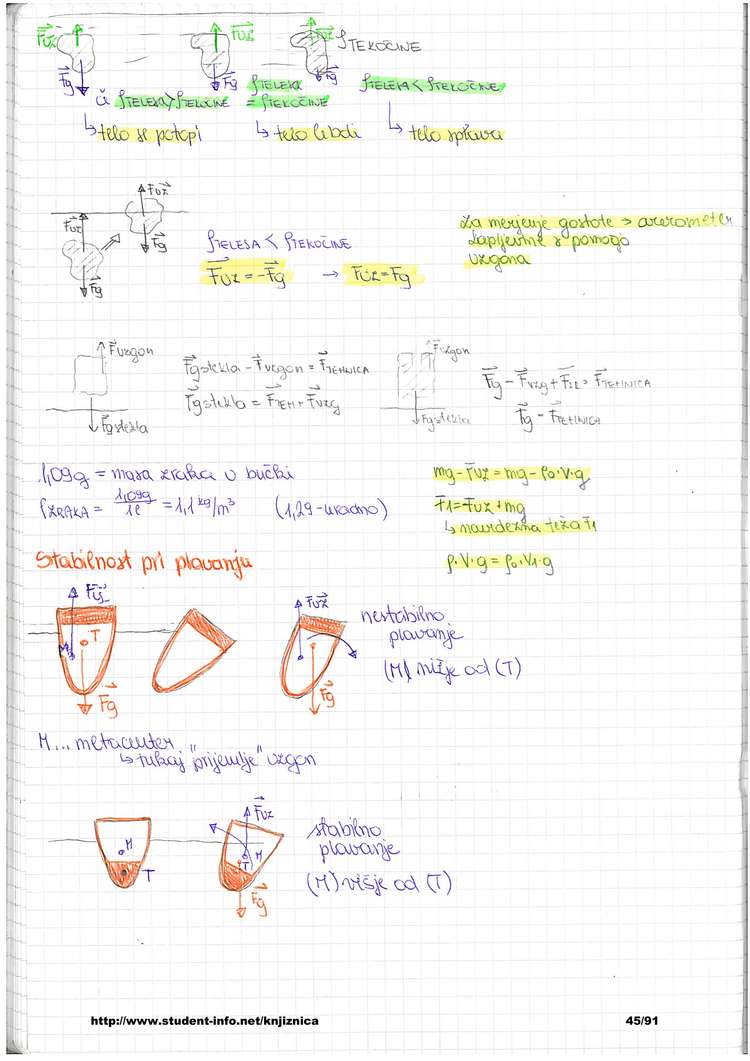 Fuz Fuz Fuz ρTEKOČINE
Fg Fg Fg
či ρTELESA>ρTEKOČINE ρTELESA = ρTEKOČINE ρTELESA < ρTEKOČINE
↳ telo se potopi ↳ telo lebdi ↳ telo splava
Fuz
Fuz
Fg
Fg
ρTELESA < ρTEKOČINE
Fuz = -Fg → Fuz = Fg
Za merjenje gostote → areometer
zapljusne s pomogo
vzgona
Fvzgon
Fg stekla - Fvzgon = FTEHNICA
Fg stekla = FTEH + Fvzg
Fg stekla
Fvzgon
Fg - Fvzg + Fzz = FTEHNICA
Fg = FTEHNICA
Fg stekla
1,09g = masa zraka v bučki
ρZRAKA = 1,09g / 1l = 1,1 kg/m³ (1,29 - uradno)
mg - Fuz = mg - ρ₀·V·g
F1 = -Fuz + mg
↳ navidezna teža F1
ρ·V·g = ρ₀·V₁·g
Stabilnost pri plavanju
T
Fg
Fuz
Fg
nestabilno
plavanje
(M) nižje od (T)
M... metacenter
↳ tukaj "prijemlje" vzgon
M
T
Fuz
M
T
Fg
stabilno
plavanje
(M) višje od (T)
http://www.student-info.net/knjiznica 45/91